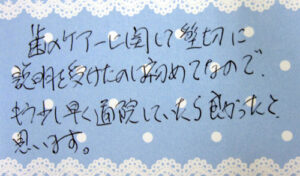 歯のケアーに関して適切に
説明を受けたのは初めてなので、
もう少し早く通院していたら良かったと
思います。